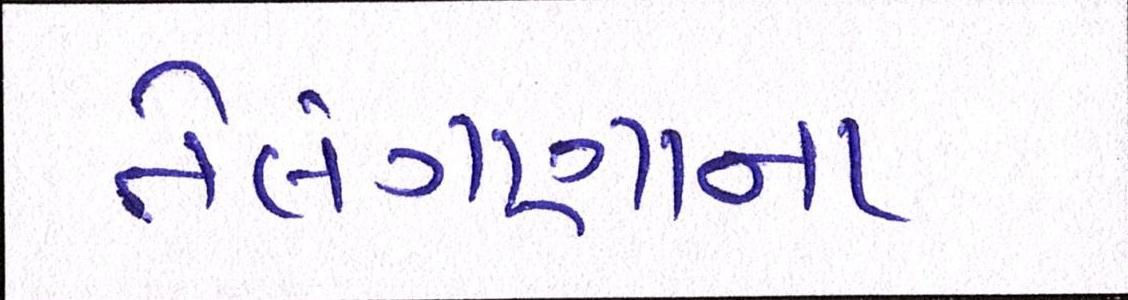 તેલંગાણાના